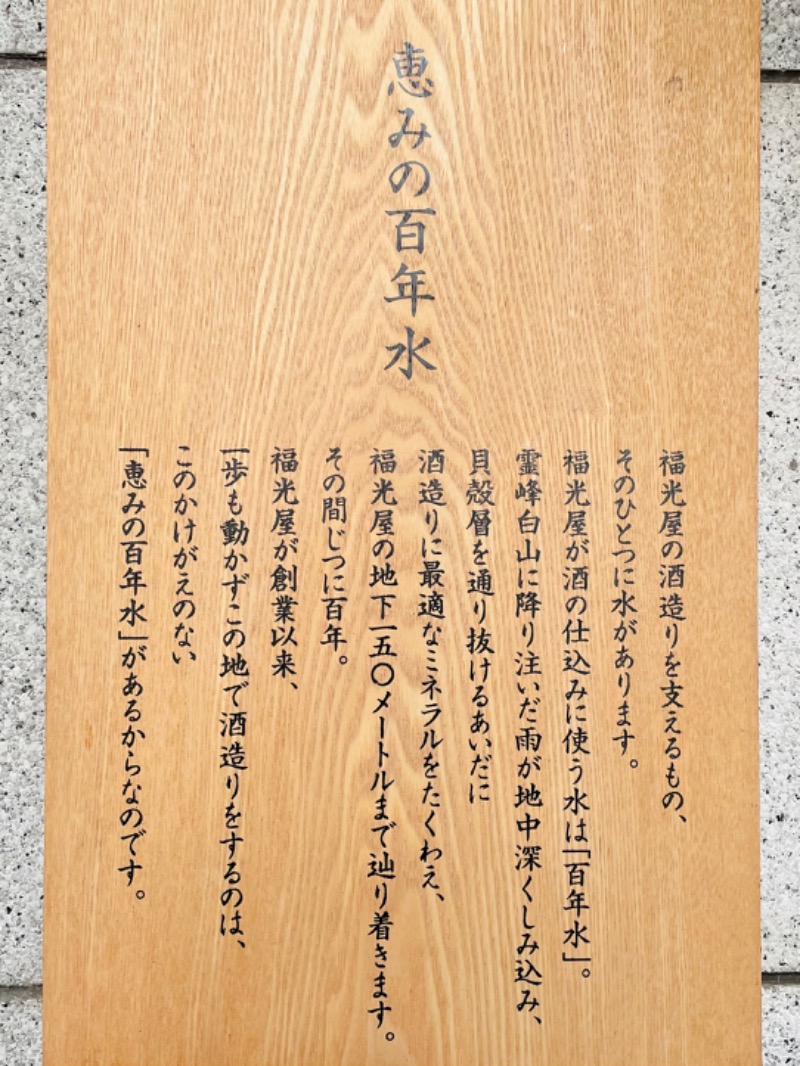 恵みの百年水
福光屋の酒造りを支えるもの、
そのひとつに水があります。
福光屋が酒の仕込みに使う水は「百年水」。
霊峰白山に降り注いだ雨が地中深くしみ込み、
貝殻層を通り抜けるあいだに
酒造りに最適なミネラルをたくわえ、
福光屋の地下一五〇メートルまで辿り着きます。
その間じつに百年。
福光屋が創業以来、
一歩も動かずこの地で酒造りをするのは、
このかけがえのない
「恵みの百年水」があるからなのです。